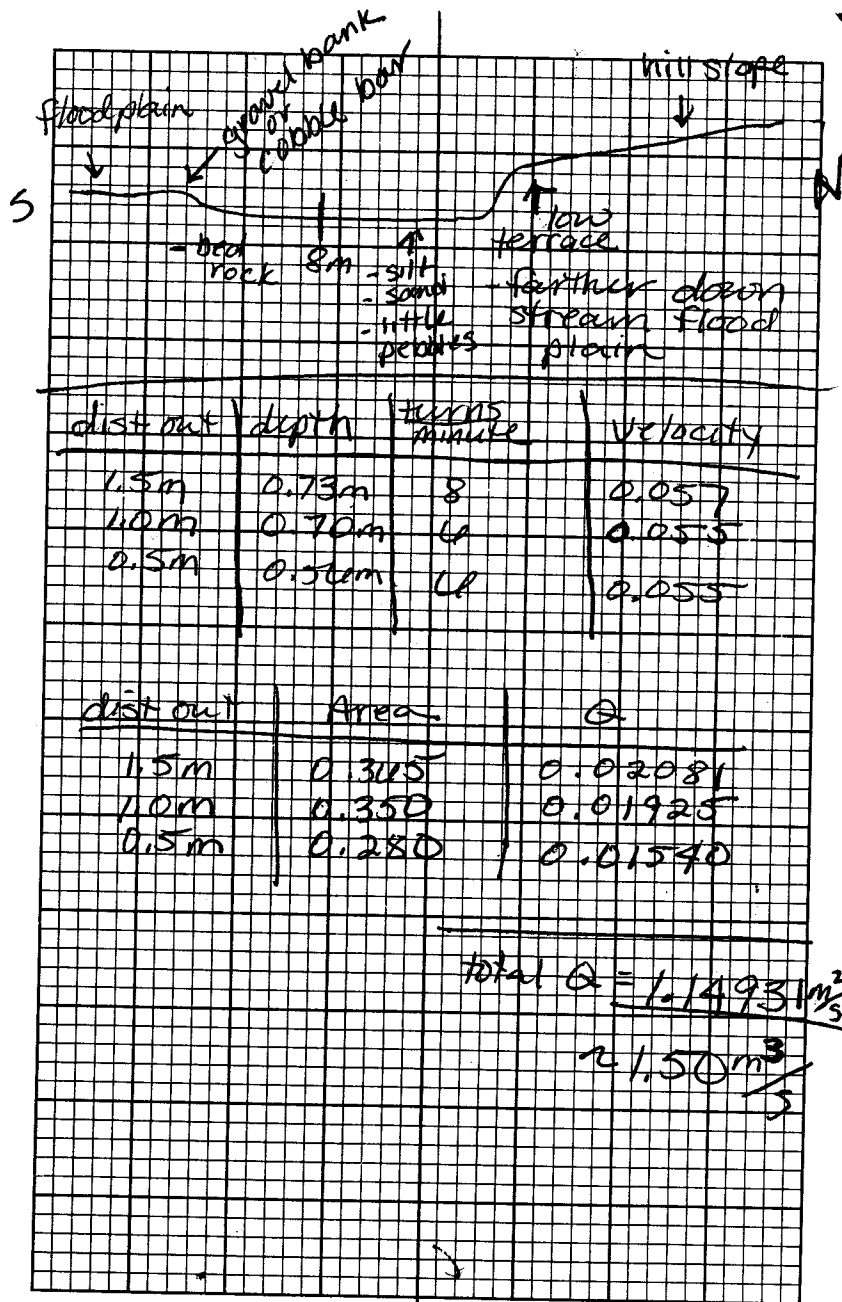 hill slope
floodplain
gravel bank
or
cobble bar
S
N
- bed
rock
8m
- silt
- sand
- little
pebbles
low
terrace
- farther down
stream flood
plain
dist out depth turns/minute velocity
1.5m 0.73m 8 0.057
1.0m 0.70m 6 0.055
0.5m 0.56m 6 0.055
dist out Area Q
1.5m 0.365 0.02081
1.0m 0.350 0.01925
0.5m 0.280 0.01540
total Q = 1.14931 m²/s
~ 1.50 m³/s